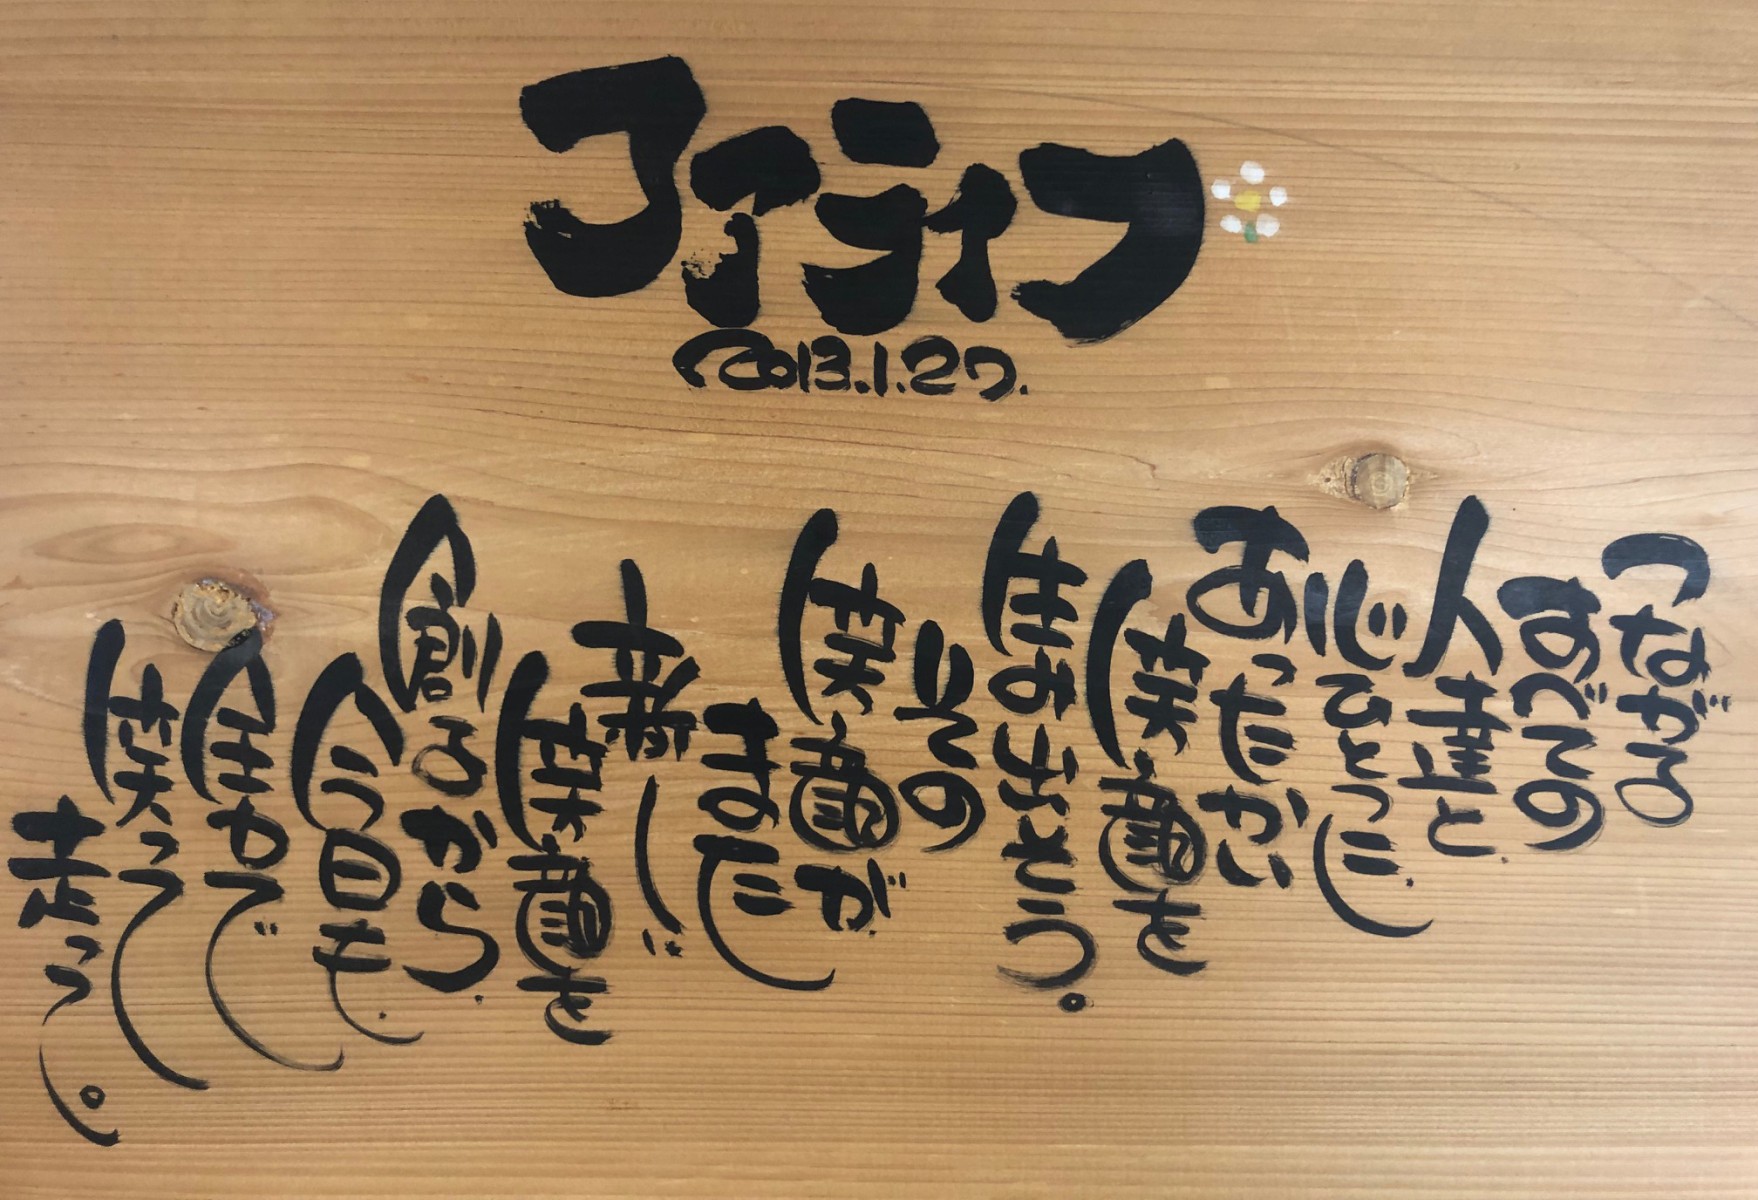 コアティフ
2013.1.27.
つながる
すべての
人達と
心ひとつに
あったかい
笑顔を
生み出そう。
その
笑顔が
また
新しい
笑顔を
創るから
今日も
全力で
笑って
走ろう。